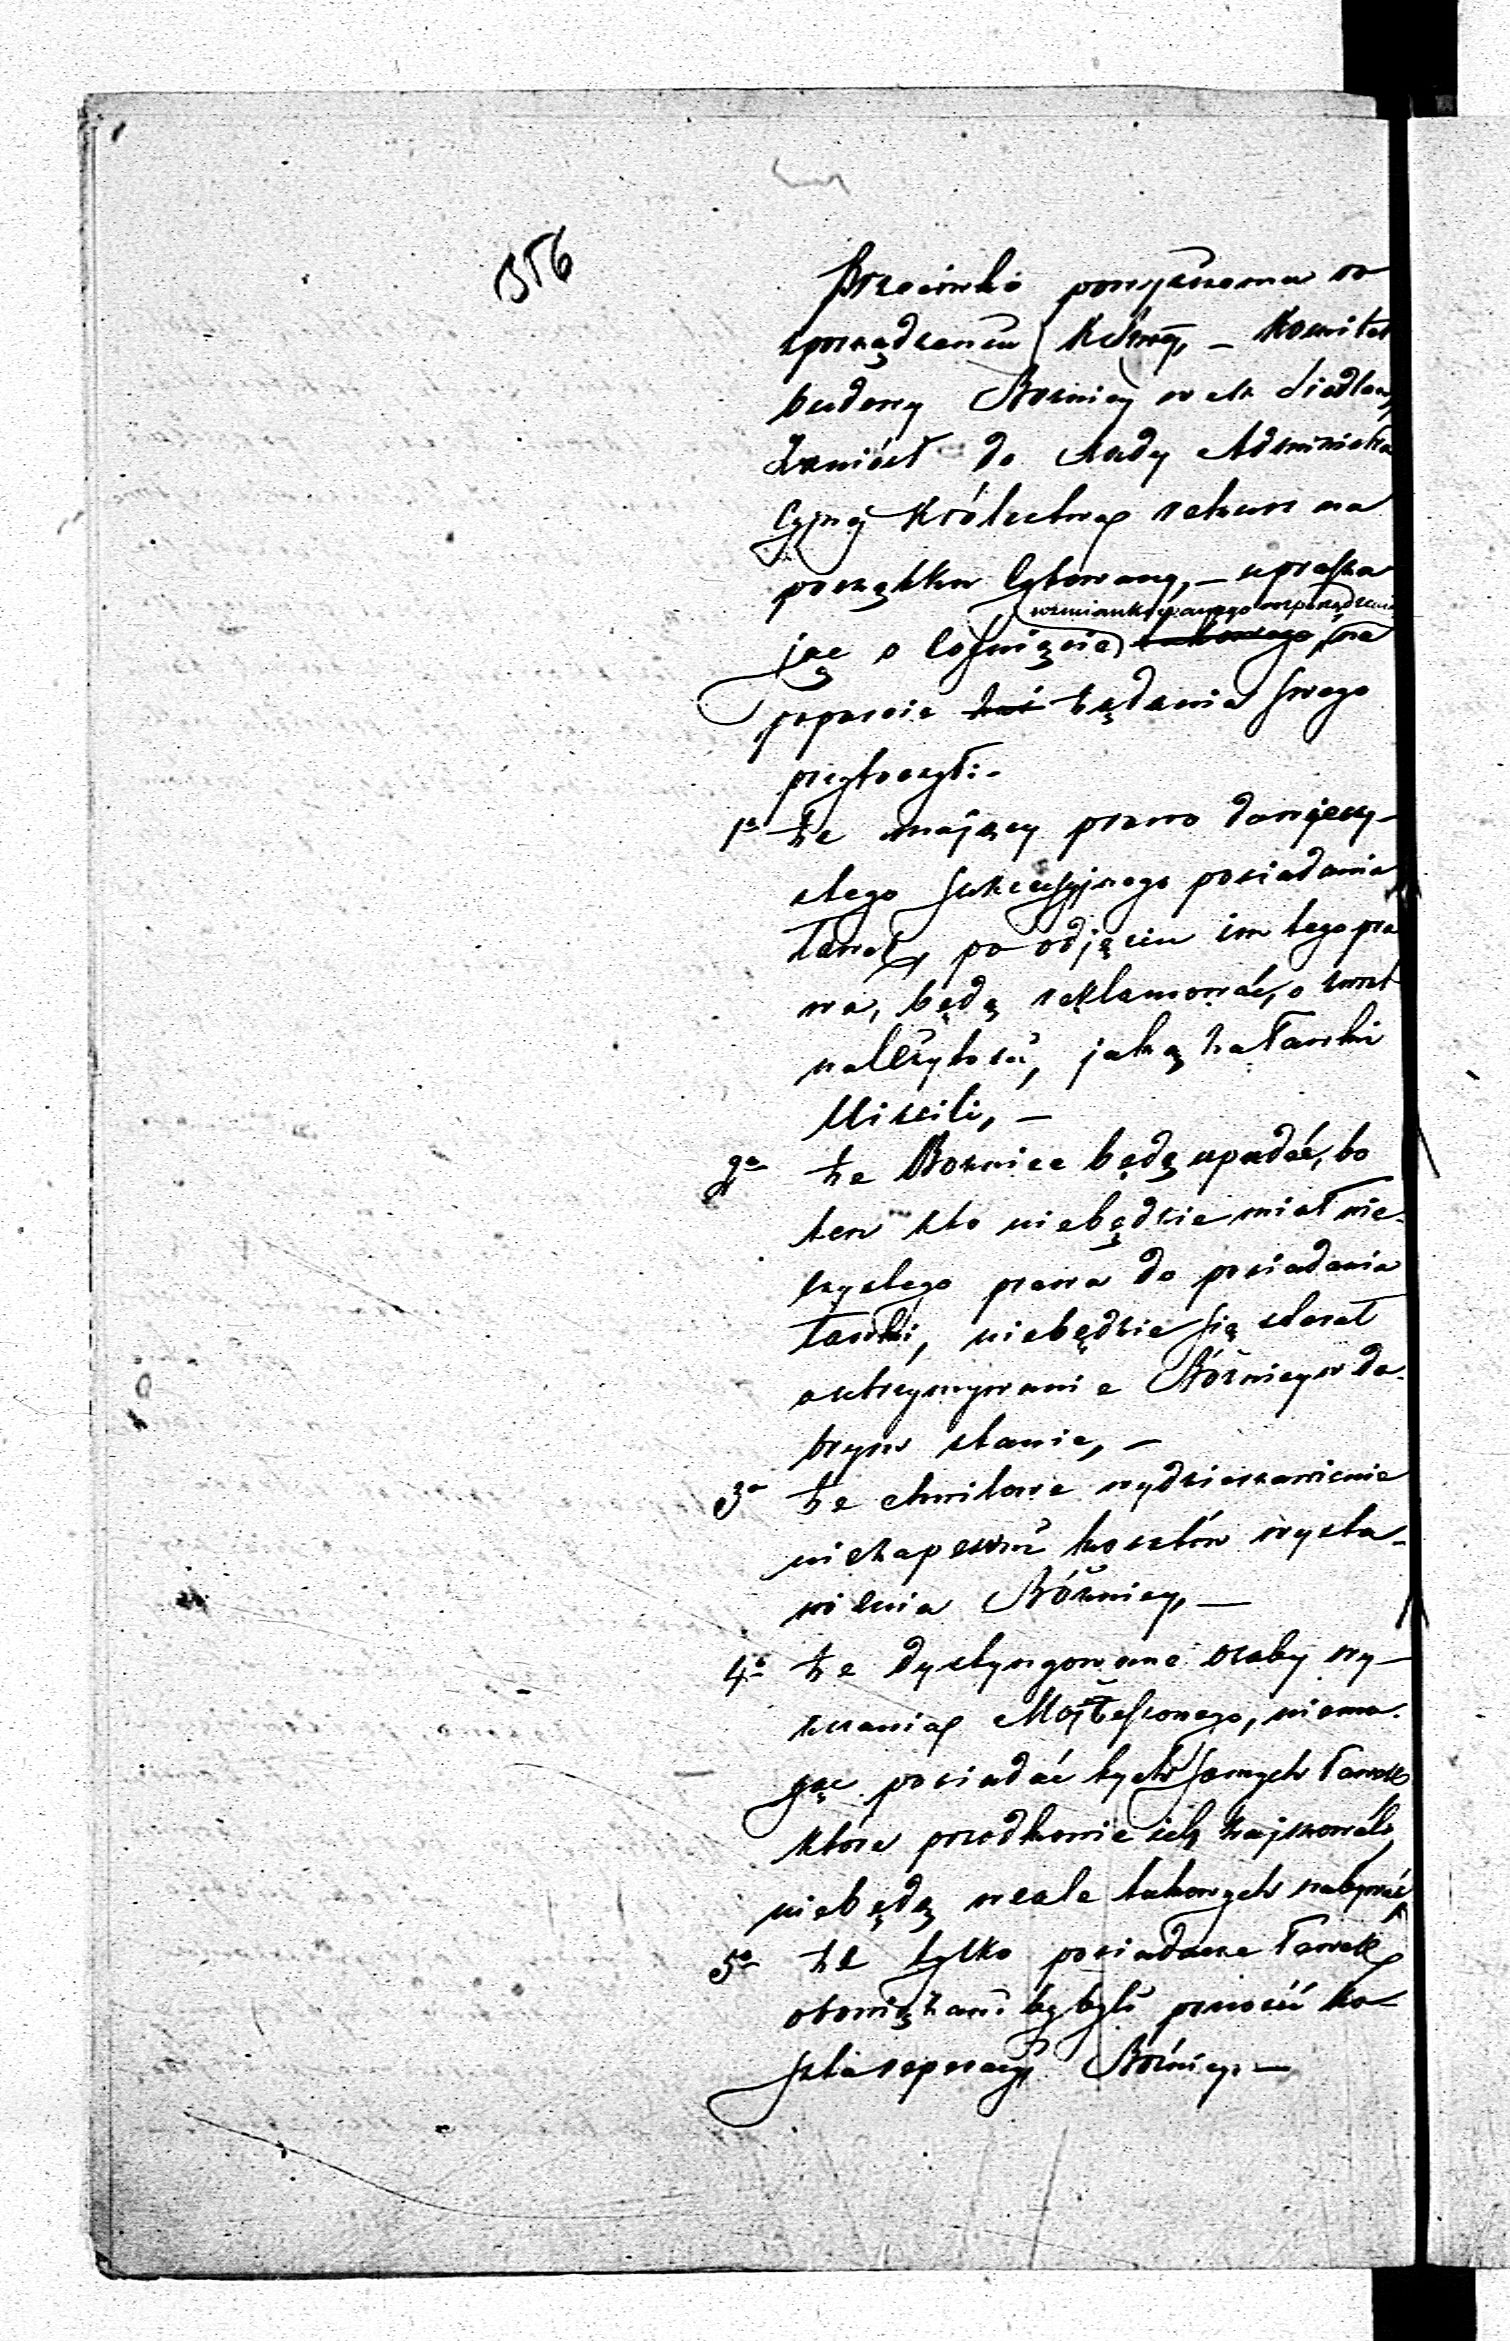 356
Przeciwko powyższemu ro
zporządzeniu KRSWę, – Komitet
budowy Boznicy w m. Siedlcach,
Zaniósł do Rady Administra
cyjnej Królestwa rekurs na
początku cytowany, – uprasza
wzmiankowanego rozporządzenia
jąc o cofnięcie takowego, na
poparcie zaś żądania swego
przytoczył: -
1e że mający prawo do wieczy-
stego sukcessyjnego posiadania
ławek, po odjęciu im tego pra
wa, będą reklamować, o zwrot
należytości, jaką za ławki
Uiścili, –
2e że Boznice będą upadać, bo
ten kto niebędzie miał wie-
czystego prawa do posiadania
ławki, niebędzie się starał
o utrzymywanie Bóżnicy w do-
brym stanie, –
3e że chwilowe wydzierżawienie
niezapewni kosztów wysta-
wienia Bóżnicy, –
4e że dystyngowane osoby wy-
znania Mojżeszowego, niemo-
gąc posiadać tych samych ławek
które przodkowie ich zajmowali,
niebędą wcale takowych nabywać,
5e że tylko posiadacze ławek
obowiązani byliby ponosić ko-
szta reperacyi Bóżnicy. –